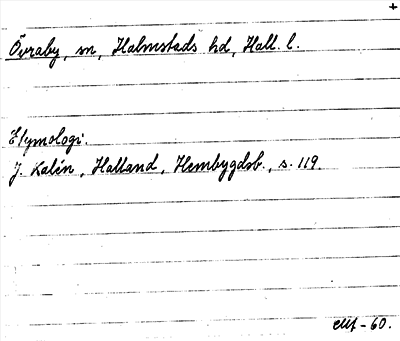 +
Övraby, sn, Halmstads hd, Hall. l.
Etymologi.
J. Kalén, Halland, Hembygdsb., s. 119.
-60.